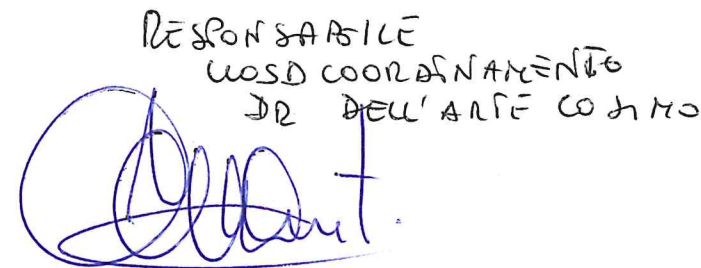 RESPONSABILE
UOSD COORDINAMENTO
DR DELL'ARTE COSIMO